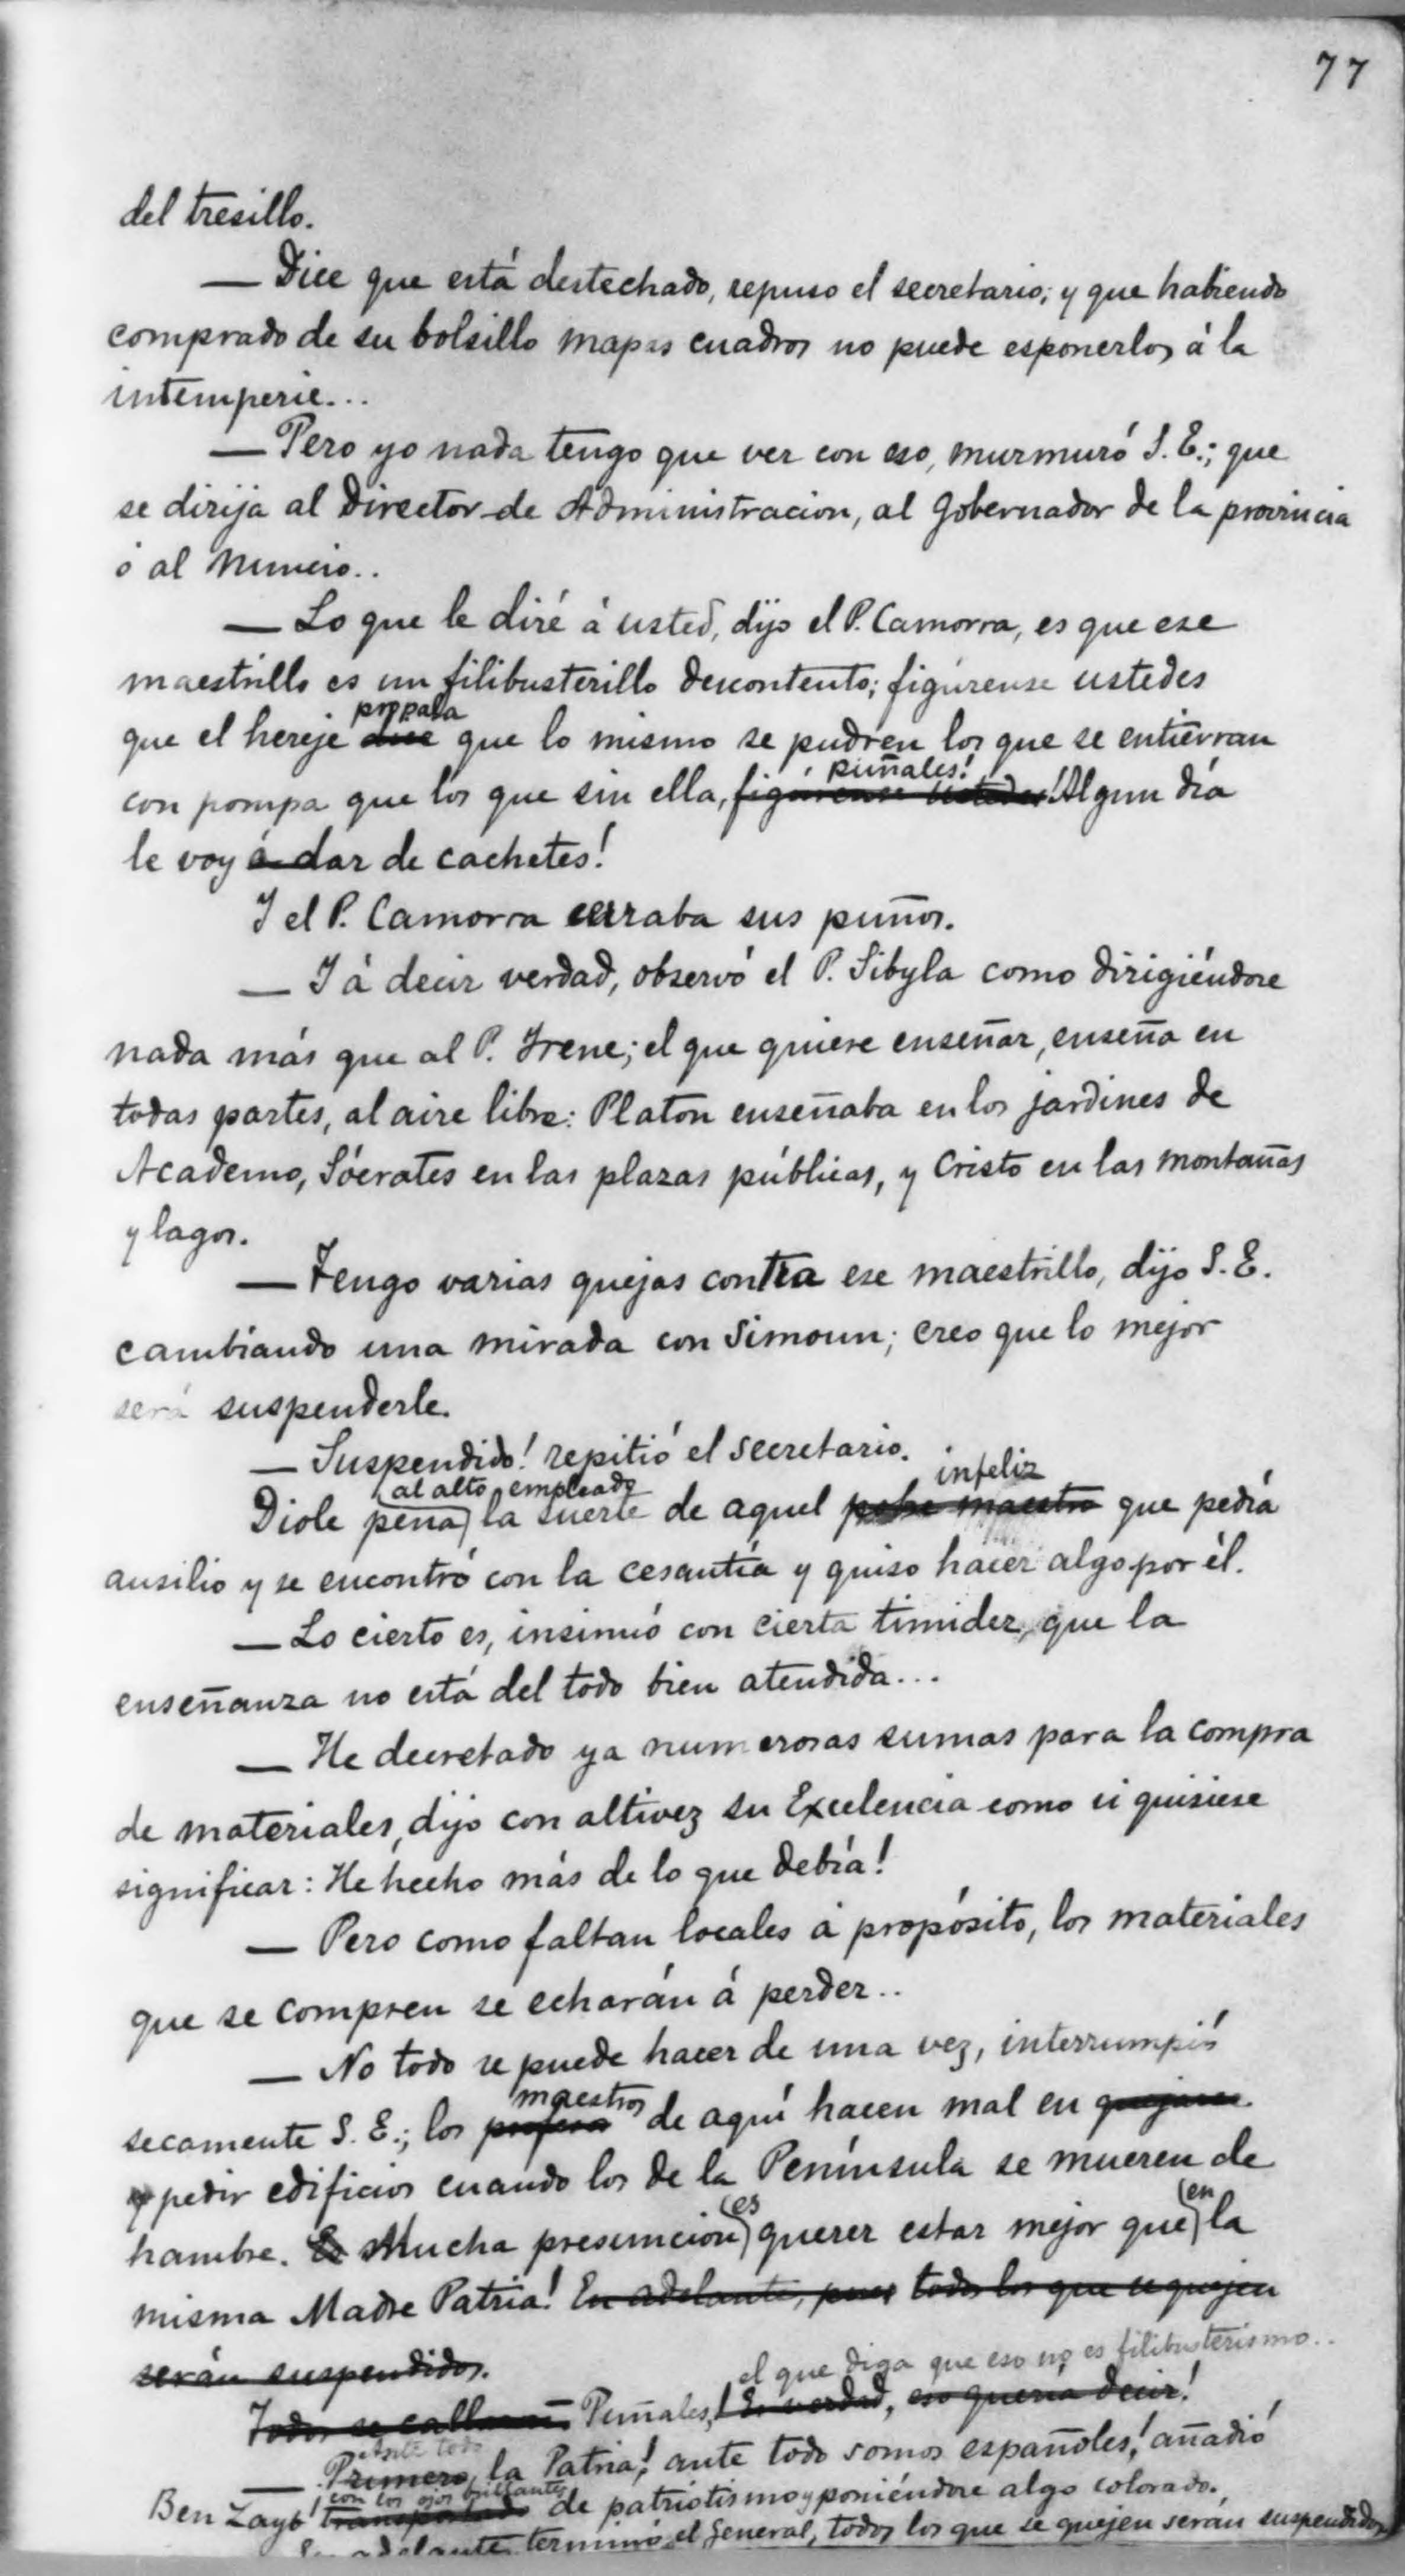 77
del tresillo.
— Dice que está destechado, repuso el secretario; y que habiendo
comprado de su bolsillo mapas cuadros no puede esponerlos á la
intemperie...
— Pero yo nada tengo que ver con eso, murmuró S. E.; que
se dirija al Director de Administracion, al Gobernador de la provincia
ó al Nuncio..
— Lo que le diré á usted, dijo el P. Camorra, es que ese
maestrillo es un filibusterillo descontento; figúrense ustedes
propala
que el hereje dice que lo mismo se pudren los que se entierran
puñales!
con pompa que los que sin ella, figúrense ustedes! Algun día
le voy á dar de cachetes!
Y el P. Camorra cerraba sus puños.
— Y á decir verdad, observó el P. Sibyla como dirigiéndose
nada más que al P. Irene; el que quiere enseñar, enseña en
todas partes, al aire libre: Platon enseñaba en los jardines de
Academo, Sócrates en las plazas públicas, y Cristo en las montañas
y lagos.
— Tengo varias quejas contra ese maestrillo, dijo S. E.
cambiando una mirada con Simoun; creo que lo mejor
será suspenderle.
— Suspendido! repitió el secretario.
al alto empleado infeliz
Diole pena la suerte de aquel pobre maestro que pedía
ausilio y se encontró con la cesantía y quiso hacer algo por él.
— Lo cierto es, insinuó con cierta timidez, que la
enseñanza no está del todo bien atendida...
— He decretado ya numerosas sumas para la compra
de materiales, dijo con altivez su Excelencia como si quisiese
significar: He hecho más de lo que debía!
— Pero como faltan locales á propósito, los materiales
que se compren se echarán á perder..
— No todo se puede hacer de una vez, interrumpió
maestros
secamente S. E.; los profesor de aquí hacen mal en quejarse
y pedir edificios cuando los de la Península se mueren de
es en
hambre. Es Mucha presuncion querer estar mejor que la
misma Madre Patria! En adelante, pues todos los que se quejen
serán suspendidos.
el que diga que eso no es filibusterismo..
Todos se callaron. Puñales, ! Es verdad, eso queria decir!
Ante todo
— Primero, la Patria! ante todo somos españoles! añadió
con los ojos brillantes
Ben Zayb transportado de patriotismo y poniéndose algo colorado.
En adelante, terminó el General, todos los que se quejen serán suspendidos